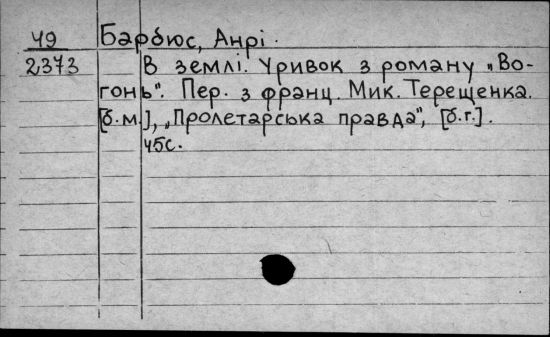 Ч9 Барбюс, Анрі.
2373 В землі. Уривок з роману „Во-
гонь". Пер. з франц. Мик. Терещенка.
[б.м.], „Пролетарська правда", [б.г.].
45с.